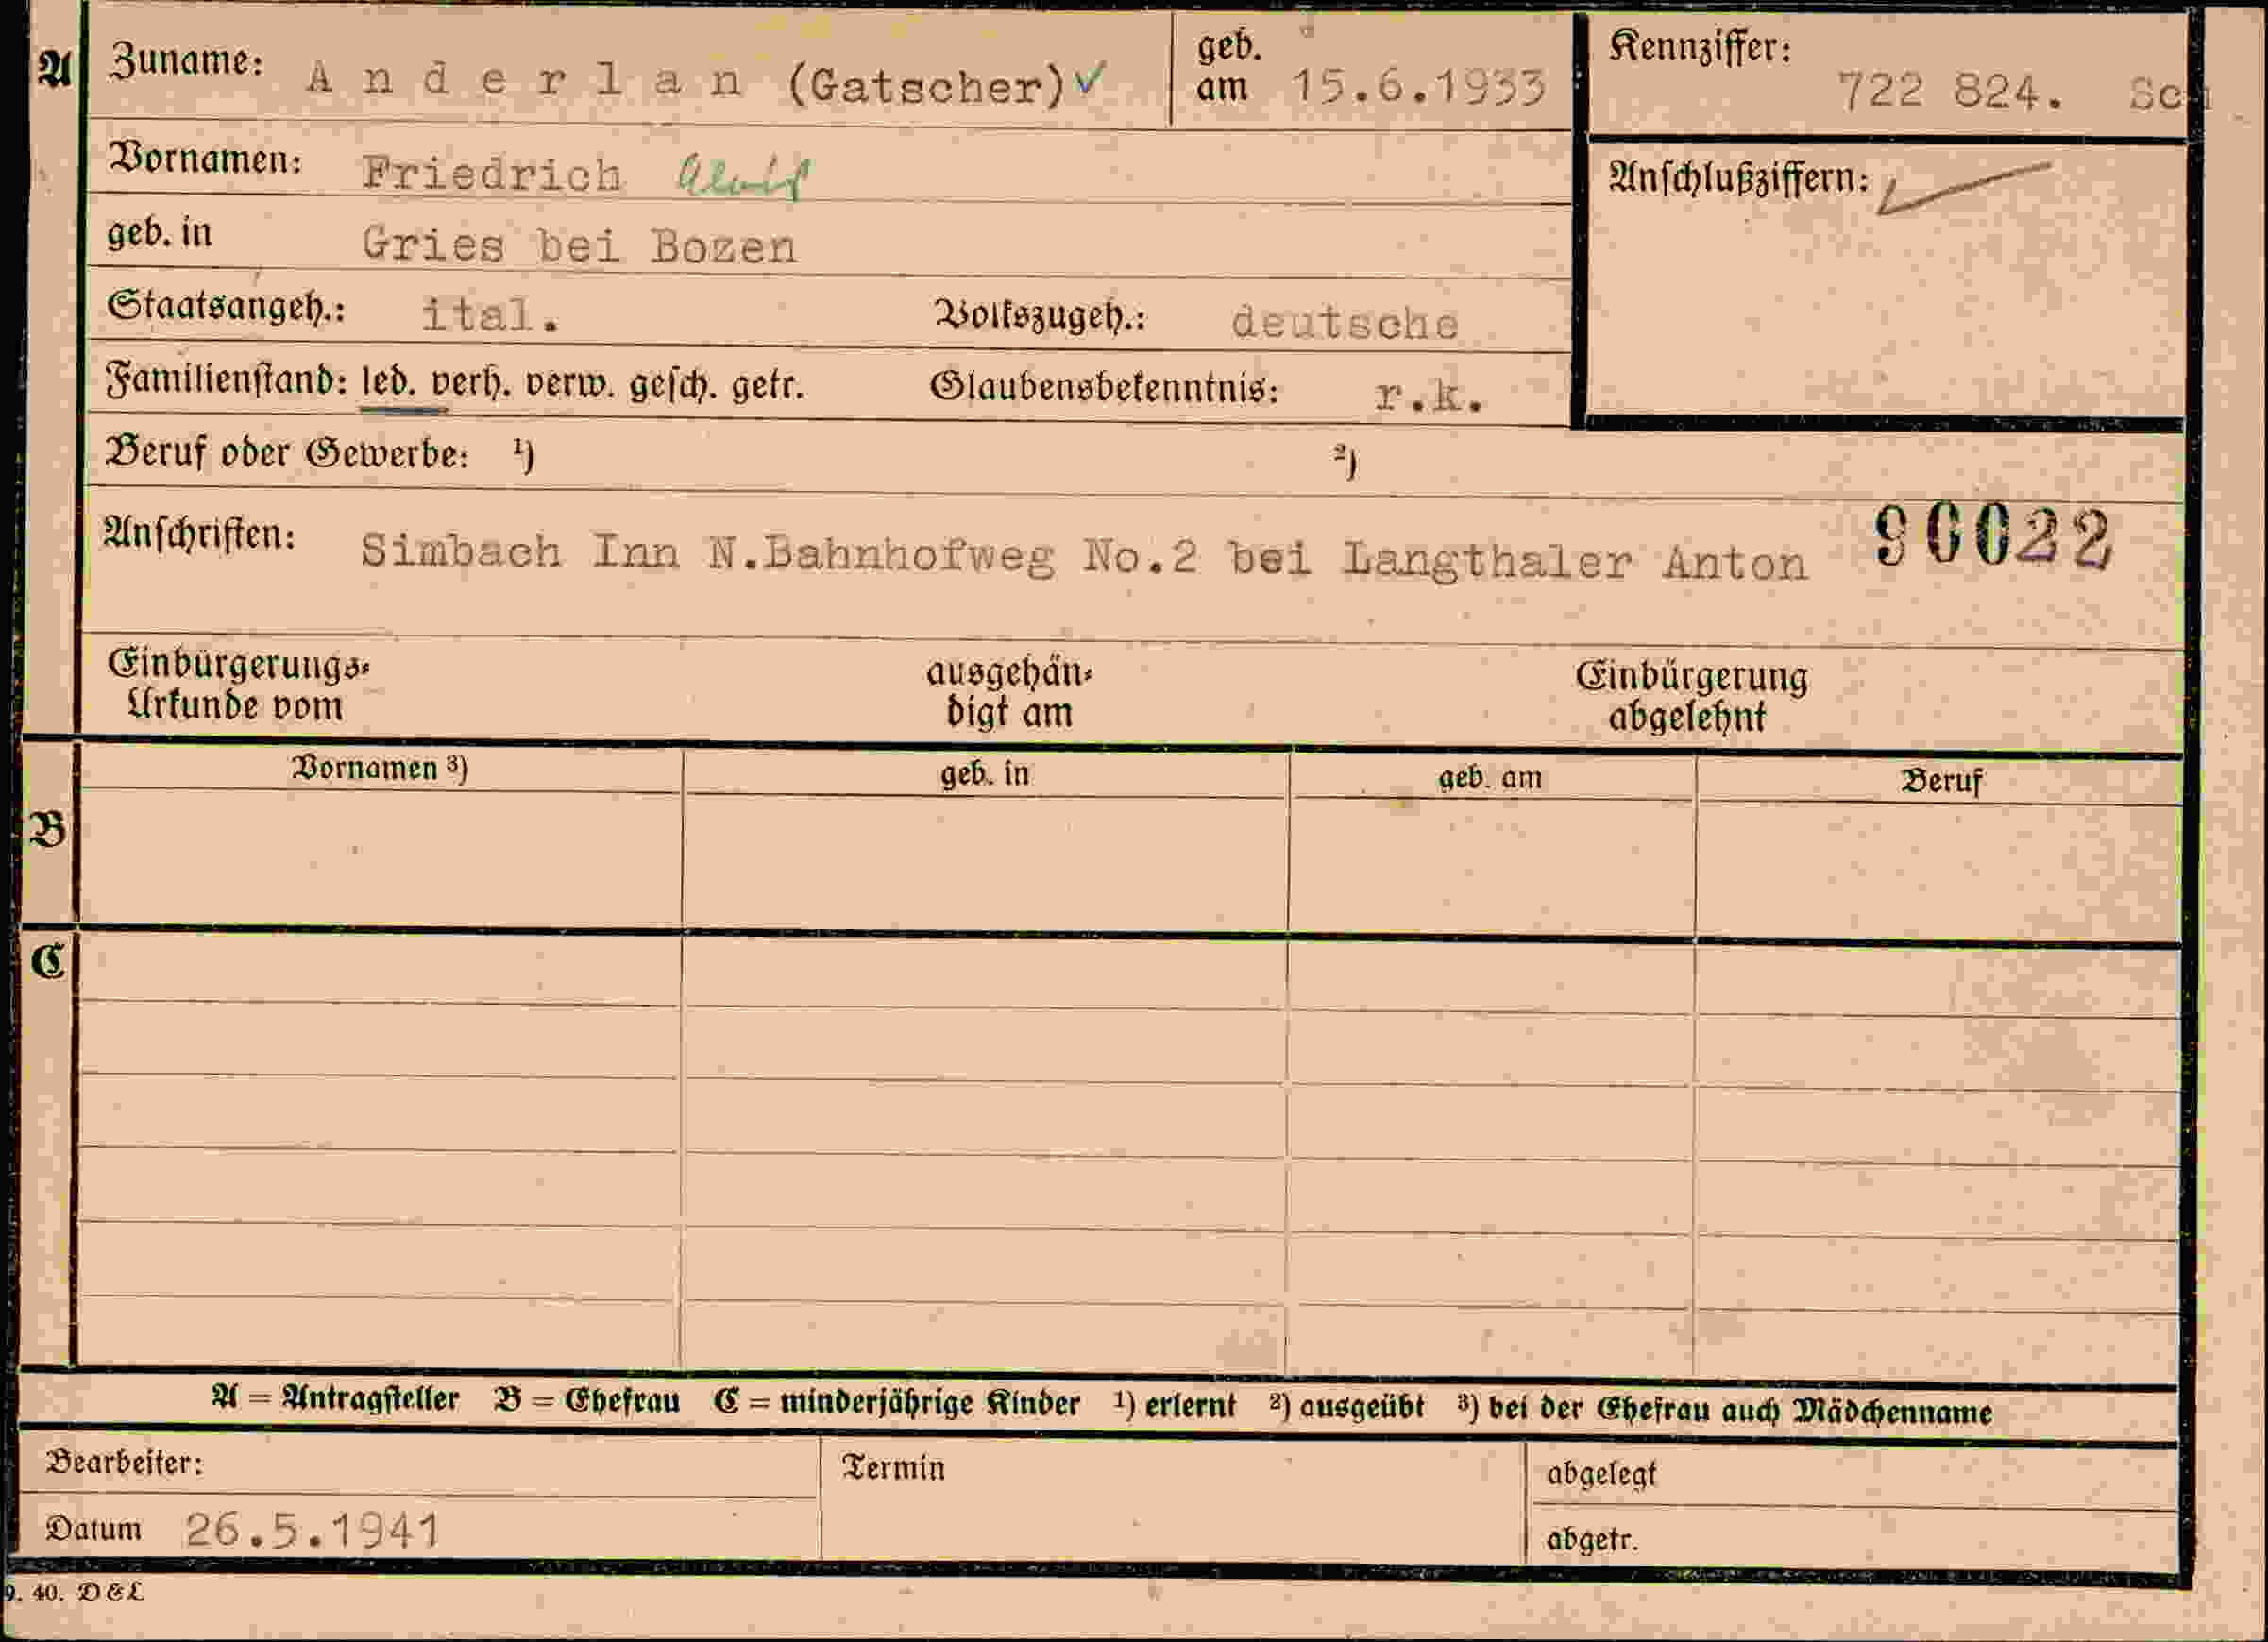 A Zuname: Anderlan (Gatscher) ✓ geb. am 15.6.1933 Kennziffer: 722 824. Sch
Vornamen: Friedrich Alois
Anschlußziffern:
geb. in Gries bei Bozen
Staatsangeh.: ital. Volkszugeh.: deutsche
Familienstand: led. verh. verw. gesch. getr. Glaubensbekenntnis: r.k.
Beruf oder Gewerbe: ¹) ²)
Anschriften: Simbach Inn N.Bahnhofweg No.2 bei Langthaler Anton 90022
Einbürgerungs= ausgehän= Einbürgerung
Urkunde vom digt am abgelehnt
Vornamen ³) geb. in geb. am Beruf
B
C
A = Antragsteller B = Ehefrau C = minderjährige Kinder ¹) erlernt ²) ausgeübt ³) bei der Ehefrau auch Mädchenname
Bearbeiter: Termin abgelegt
Datum 26.5.1941 abgetr.
9. 40. D&L